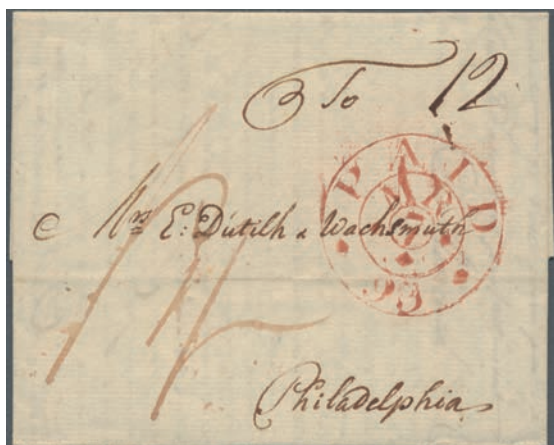 To 12
PAID
Mrs E: Dutilh & Wachsmuth
7
93
Philadelphia